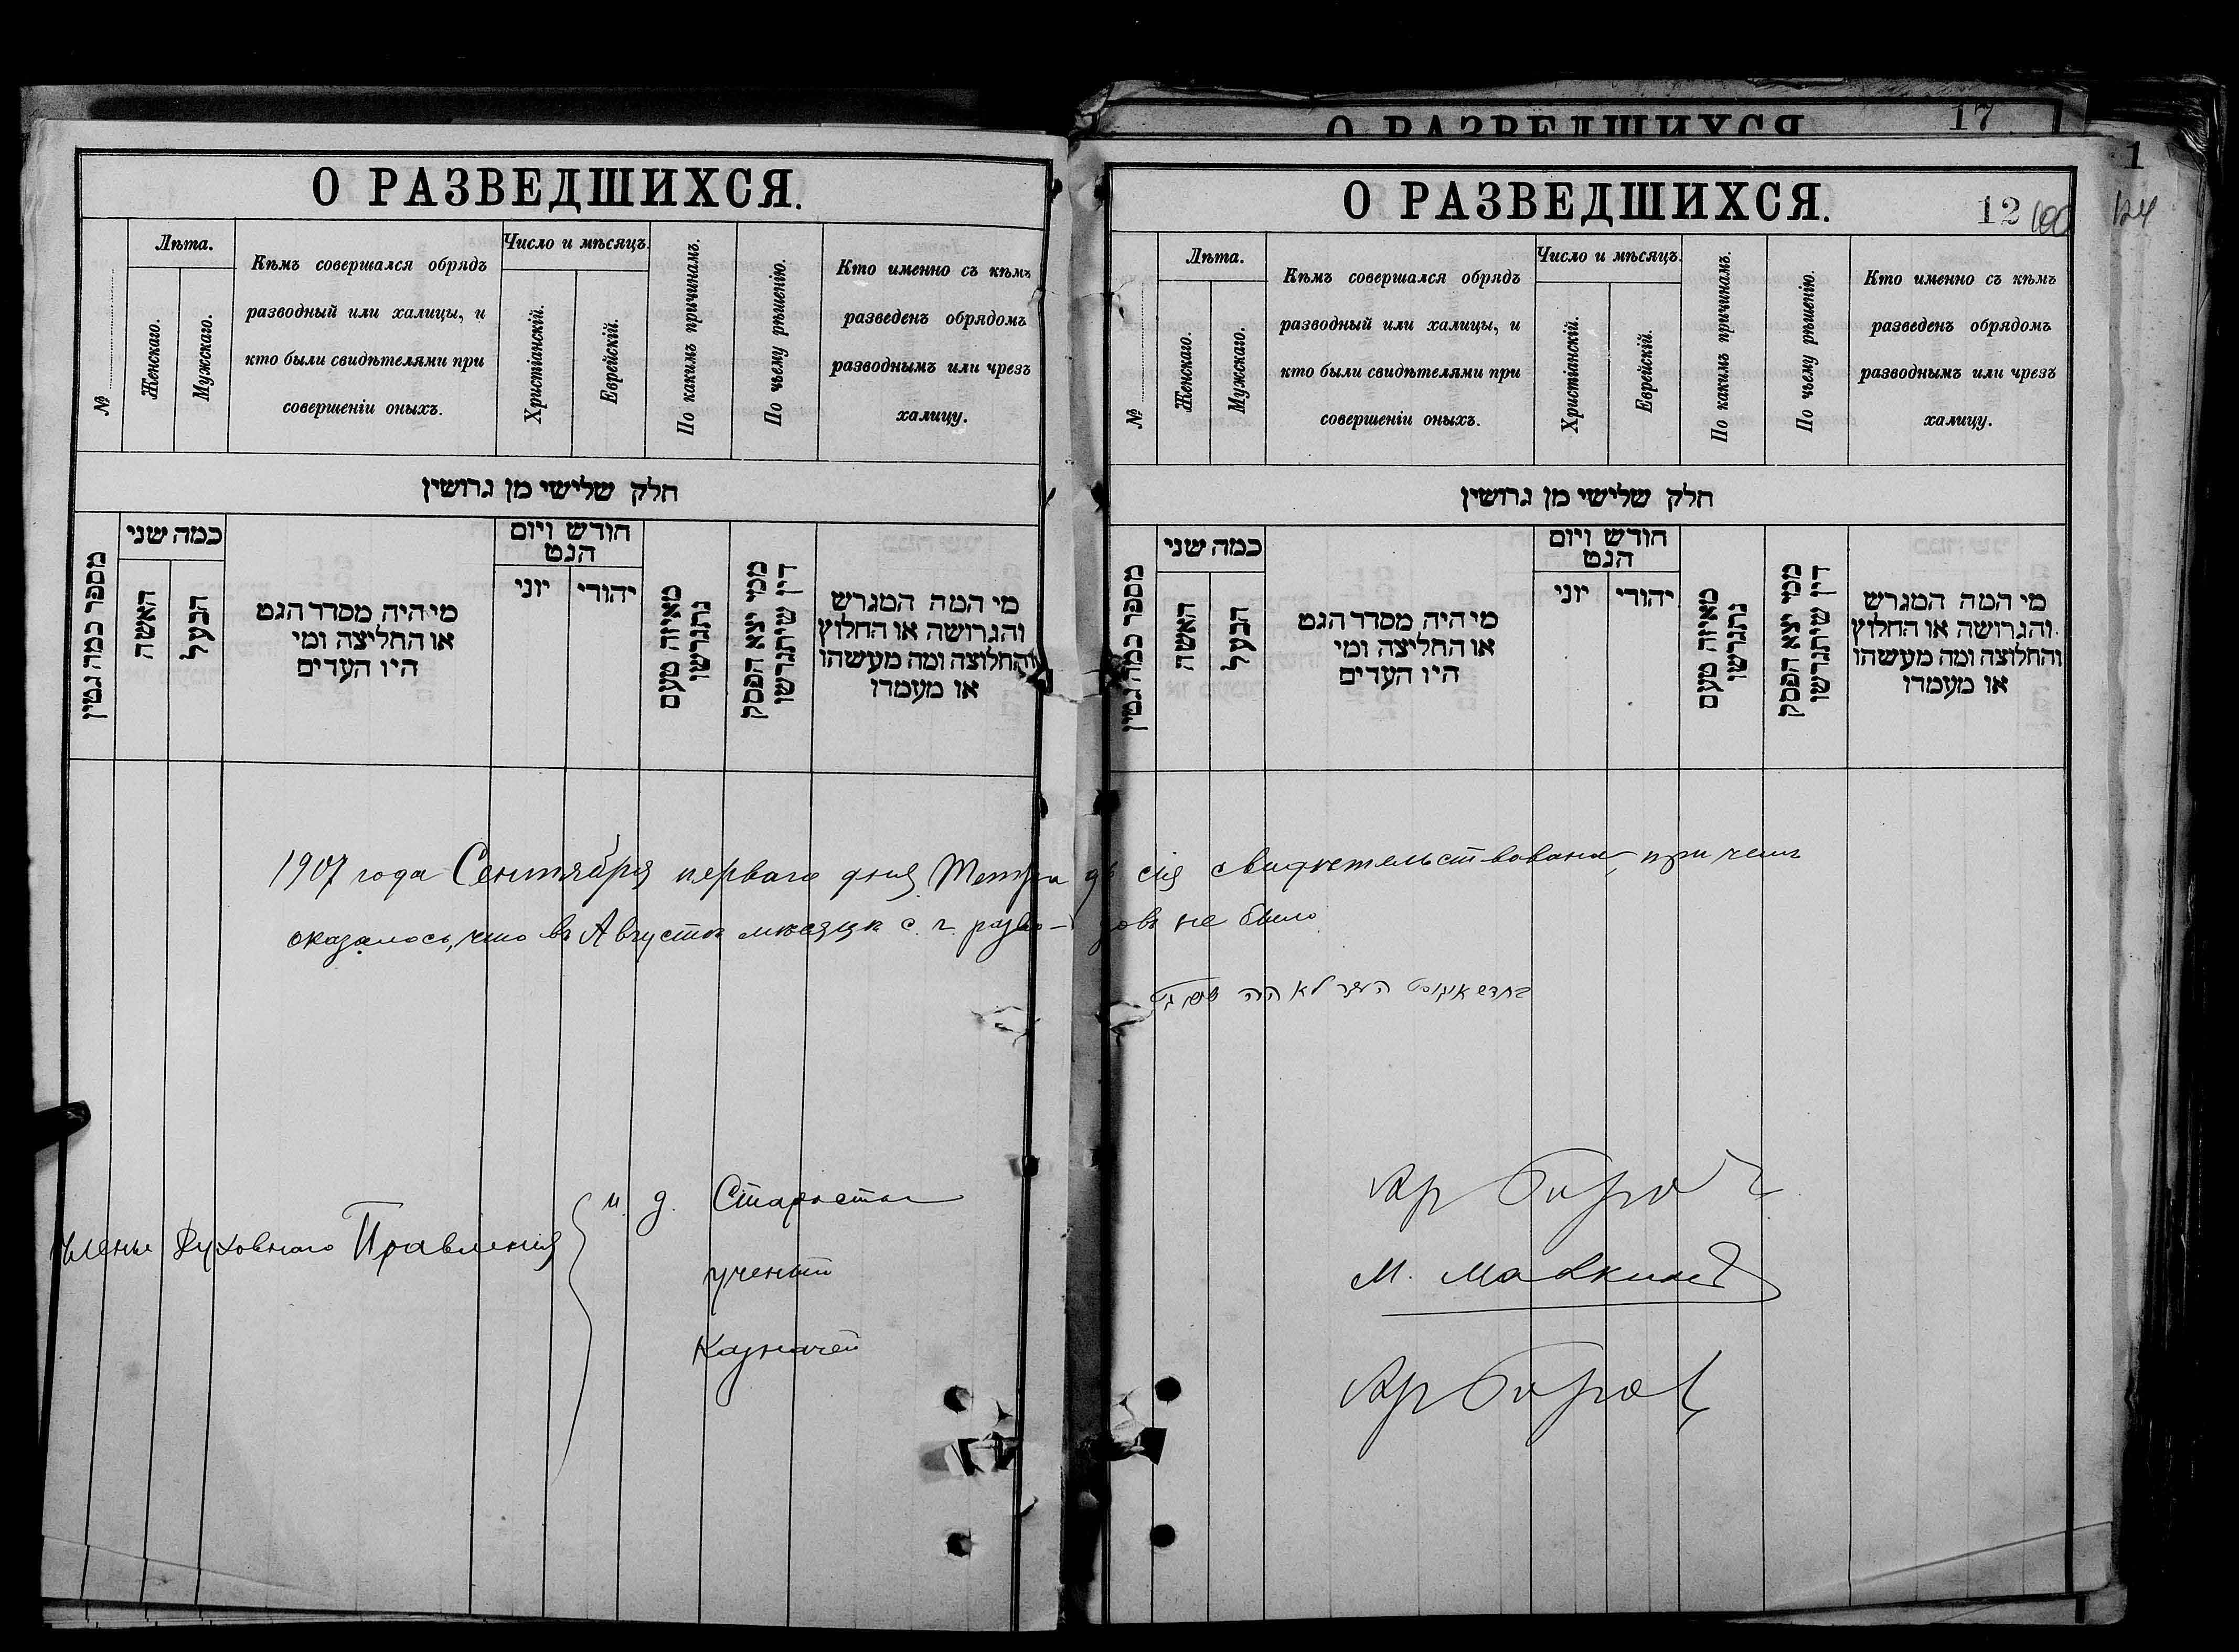 О РАЗВЕДШИХСЯ.
№
Лѣта.
Женскаго.
Мужскаго.
Кѣмъ совершался обрядъ
разводный или халицы, и
кто были свидѣтелями при
совершеніи оныхъ.
Число и мѣсяцъ.
Христіанскій.
Еврейскій.
По какимъ причинамъ.
По чьему рѣшенію.
Кто именно съ кѣмъ
разведенъ обрядомъ
разводнымъ или чрезъ
халицу.
חלק שלישי מן גרושין
מספר כמה גטין
כמה שני
האשה
הבעל
מי היה מסדר הגט
או החליצה ומי
היו העדים
חודש ויום
הגט
יוני
יהודי
מאיזה טעם
נתגרשו
ממי יצא הפסק
דין שיתגרשו
מי המה המגרש
והגרושה או החלוץ
והחלוצה ומה מעשהו
או מעמדו
17
О РАЗВЕДШИХСЯ
1
124
О РАЗВЕДШИХСЯ.
12 100
№
Лѣта.
Женскаго.
Мужскаго.
Кѣмъ совершался обрядъ
разводный или халицы, и
кто были свидѣтелями при
совершеніи оныхъ.
Число и мѣсяцъ.
Христіанскій.
Еврейскій.
По какимъ причинамъ.
По чьему рѣшенію.
Кто именно съ кѣмъ
разведенъ обрядомъ
разводнымъ или чрезъ
халицу.
חלק שלישי מן גרושין
מספר כמה גטין
כמה שני
האשה
הבעל
מי היה מסדר הגט
או החליצה ומי
היו העדים
חודש ויום
הגט
יוני
יהודי
מאיזה טעם
נתגרשו
ממי יצא הפסק
דין שיתגרשו
מי המה המגרש
והגרושה או החלוץ
והחלוצה ומה מעשהו
או מעמדו
1907 года Сентября перваго дня Тетрадь сія свидѣтельствована, при чемъ
оказалось, что въ Августѣ мѣсяцѣ с. г. разво-довъ не было
לא היה
Члены Духовнаго Правленія
и. д. Старосты
ученый
Казначей
М.